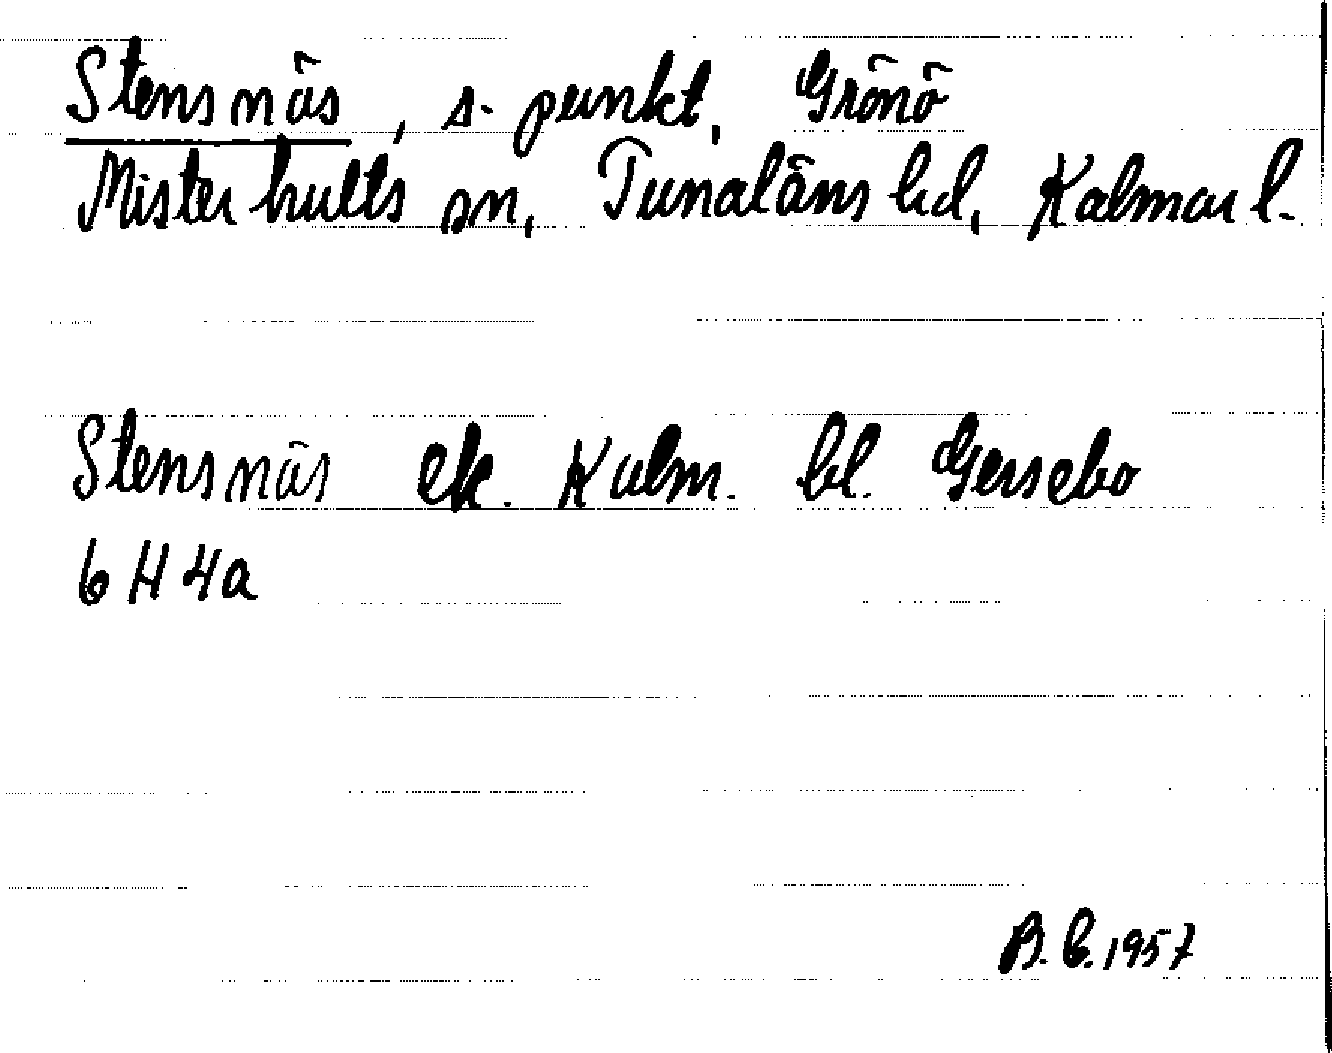 Stensnäs, s-punkt, Grönö
Misterhults sn, Tunaläns hd, Kalmar l.
Stensnäs ek. Kalm. bl. Gersebo
6H4a
B.C. 1957